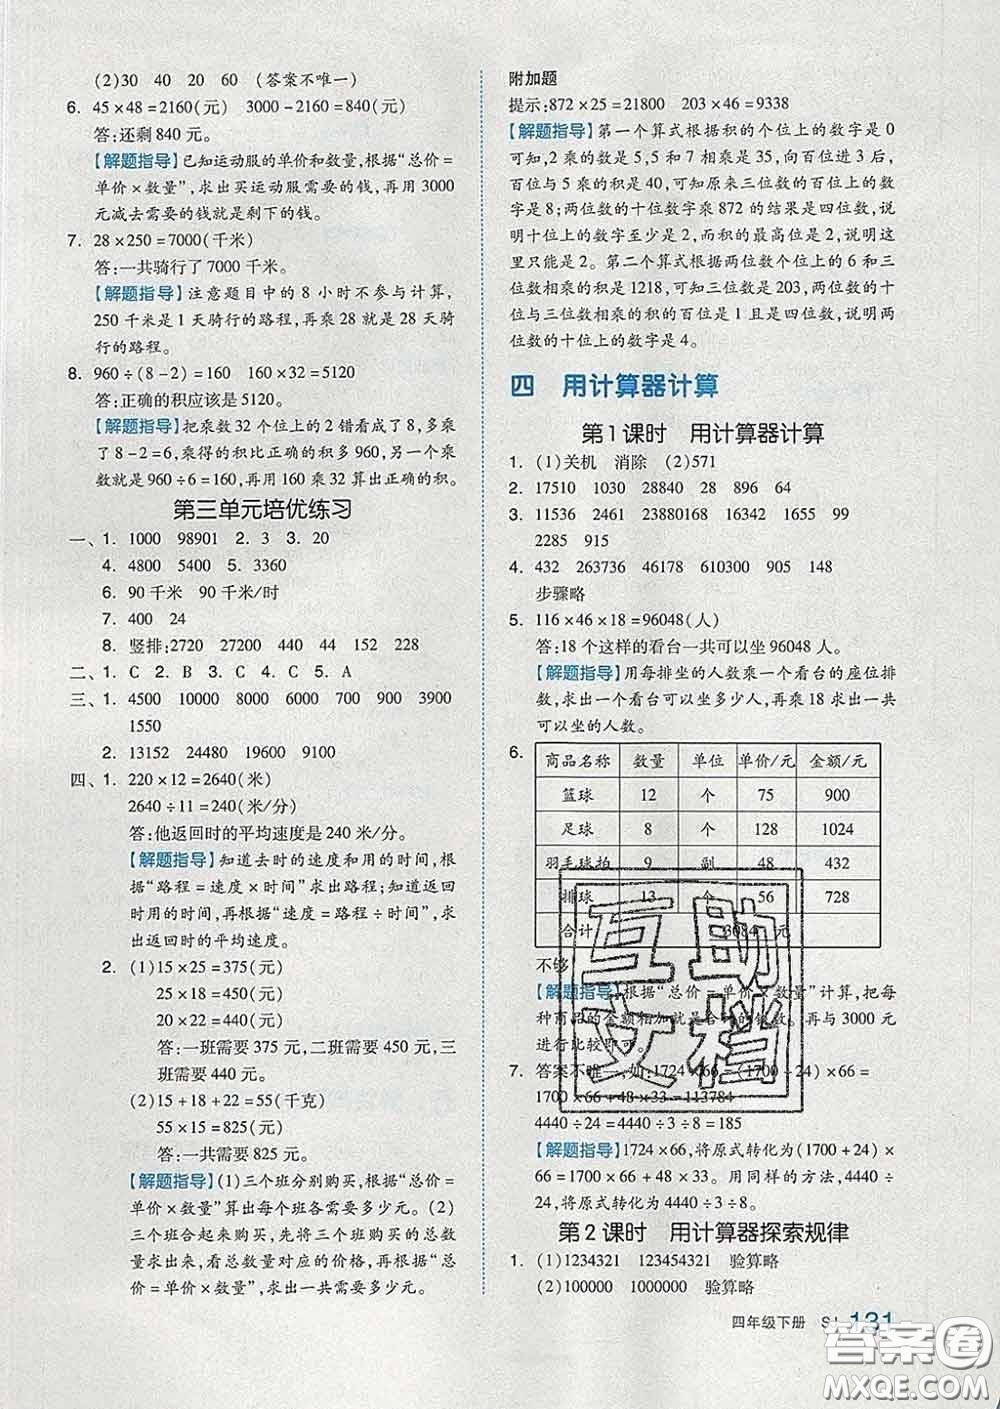 (2)30　40　20　60　(答案不唯一)
6. 45×48=2160(元)　3000-2160=840(元)
答:还剩 840 元。
【解题指导】已知运动服的单价和数量,根据“总价=
单价×数量”,求出买运动服需要的钱,再用 3000
元减去需要的钱就是剩下的钱。
7. 28×250=7000(千米)
答:一共骑行了 7000 千米。
【解题指导】注意题目中的 8 小时不参与计算,
250 千米是 1 天骑行的路程,再乘 28 就是 28 天骑
行的路程。
8. 960÷(8-2)=160　160×32=5120
答:正确的积应该是 5120。
【解题指导】把乘数 32 个位上的 2 错看成了 8,多乘
了 8-2=6,乘得的积比正确的积多 960,另一个乘
数就是 960÷6=160,再用 160 乘 32 算出正确的积。
第三单元培优练习
一、1. 1000　98901　2. 3　3. 20
4. 4800　5400　5. 3360
6. 90 千米　90 千米/时
7. 400　24
8. 竖排:2720　27200　440　44　152　228
二、1. C　2. B　3. C　4. C　5. A
三、1. 4500　10000　8000　6000　700　900　3900
1550
2. 13152　24480　19600　9100
四、1. 220×12=2640(米)
2640÷11=240(米/分)
答:他返回时的平均速度是 240 米/分。
【解题指导】知道去时的速度和用的时间,根
据“路程=速度×时间”求出路程;知道返回
时用的时间,再根据“速度=路程÷时间”,求
出返回时的平均速度。
2. (1)15×25=375(元)
25×18=450(元)
20×22=440(元)
答:一班需要 375 元,二班需要 450 元,三
班需要 440 元。
(2)15+18+22=55(千克)
55×15=825(元)
答:一共需要 825 元。
【解题指导】(1)三个班分别购买,根据“总价=
单价×数量”算出每个班各需要多少元。(2)
三个班合起来购买,先将三个班买的大米数量
求出来,看总数量对应的价格,再根据“总价
=单价×数量”,求出一共需要多少元。
附加题
提示:872×25=21800　203×46=9338
【解题指导】第一个算式根据积的个位上的数字是 0
可知,2 乘的数是 5,5 和 7 相乘是 35,向百位进 3 后,
百位与 5 乘的积是 40,可知原来三位数的百位上的数
字是 8;两位数的十位数字乘 872 的结果是四位数,说
明十位上的数字至少是 2,而积的最高位是 2,说明这
里只能是 2。第二个算式根据两位数个位上的 6 和三
位数相乘的积是 1218,可知三位数是 203,两位数的十
位与三位数相乘的积的百位是 1 且是四位数,说明两
位数的十位上的数字是 4。
四　用计算器计算
第 1 课时　用计算器计算
1. (1)关机　消除　(2)571
2. 17510　1030　28840　28　896　64
3. 11536　2461　23880168　1566　1655　99
2285　915
4. 432　263736　46178　610300　905　148
步骤略
5. 116×46×18=96048(人)
答:18 个这样的看台一共可以坐 96048 人。
【解题指导】用每排坐的人数乘一个看台的座位排
数,求出一个看台可以坐多少人,再乘 18 求出一共
可以坐的人数。
6.
商品名称　数量　单位　单价/元　金额/元
篮球　12　个　75　900
足球　8　个　128　1024
羽毛球拍　9　副　48　432
排球　13　个　56　728
合计　3084　元
不够
【解题指导】根据“总价=单价×数量”计算,把每
种商品的金额相加就是合计的钱数。再与 3000 元
进行比较即可。
7. 答案不唯一,如:1724×66=(1700+24)×66=
1700×66+48×33=113784
4440÷24=4440÷3÷8=185
【解题指导】1724×66,将原式转化为(1700+24)×
66=1700×66+48×33。用同样的方法,4440÷
24,将原式转化为 4440÷3÷8。
第 2 课时　用计算器探索规律
1. (1)1234321　123454321　验算略
(2)100000　1000000　验算略
四年级下册　SJ　131
互助
文档
答案圈
MXQE.COM